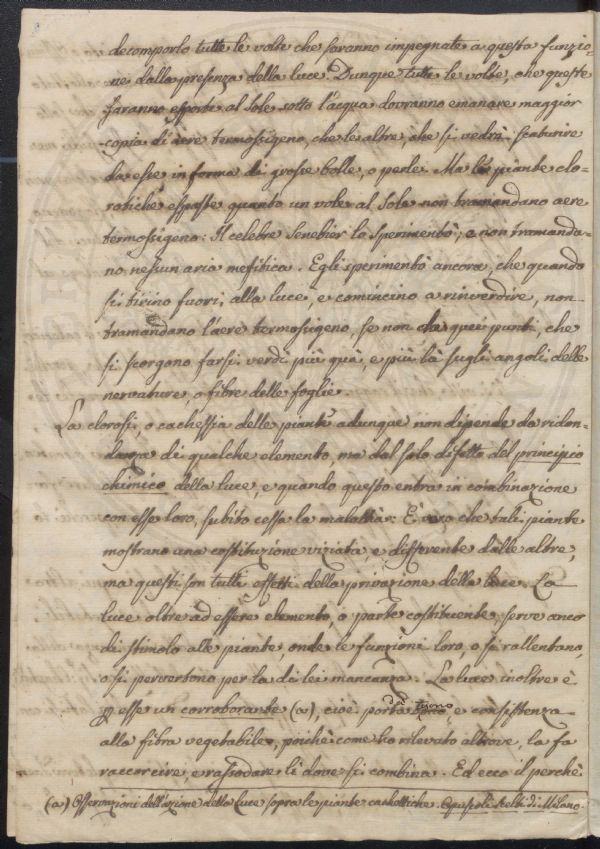 decomporlo tutte le volte che saranno impegnate a questa funzio=
ne dalla presenza della luce. Dunque tutte le volte, che queste
saranno esposte al Sole sotto l'acqua dovranno emanare maggior
copia di aere termossigeno, che le altre, che si vedrà scaturire
da esse in forma di grosse bolle, o perle. Ma le piante clo=
rotiche esposte quanto un vole al Sole non tramandano aere
termossigeno: Il celebre Senebier lo sperimentò; e non tramanda=
no nessun aria mefitica. Egli sperimentò ancora, che quando
si tirino fuori, alla luce, e comincino a rinverdire, non
tramandano l'aere termossigeno, se non da quei punti, che
si scorgono farsi verdi più quà, e più là sugli angoli delle
nervature, o fibre delle foglie.
La clorosi, o cachessia delle piante adunque non dipende da ridon=
danza di qualche elemento, ma dal solo difetto del principio
chimico della luce, e quando questo entra in combinazione
con esse loro, subito cessa la malattia: È vero che tali piante
mostrano una costituzione viziata e differente dalle altre,
ma questi son tutti effetti della privazione della luce. La
luce oltre ad essere elemento, o parte costituente, serve anco
di stimolo alle piante, onde le funzioni loro, o si rallentano,
o si pervertono per la di lei mancanza. La luce inoltre è
p esse un corroborante (a), cioè porta del tuono, e consistenza
alla fibra vegetabile, poichè come ho rilevato altrove, la fa
raccorcire, e rassodare lì dove si combina. Ed ecco il perchè
(a) Osservazioni dell'azione della luce sopra le piante cachettiche. Opuscoli scelti di Milano.